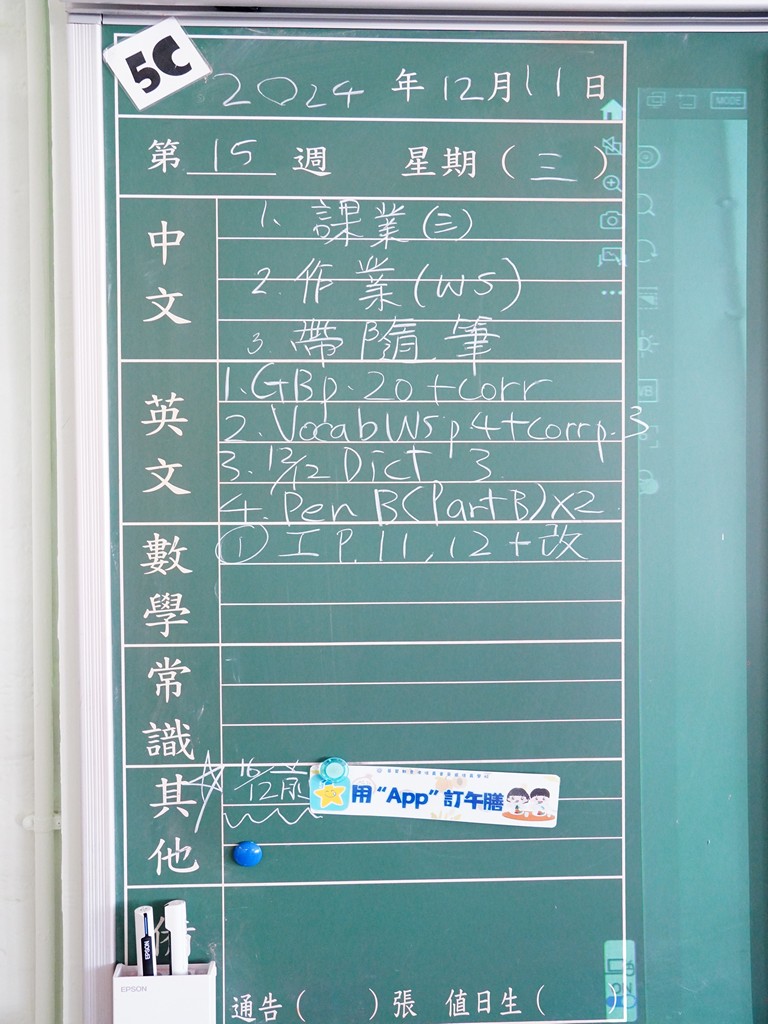 5C
2024 年 12月11日
第 15 週 星期(三)
MODE
中文
1. 課業(三)
2. 作業(WS)
3. 帶隨筆
英文
1. GBp.20+corr
2. VocabWs p4+corrp.3
3. 12/12 Dict 3
4. Pen B(PartB)X2
數學
① 工 P.11,12+改
常識
其他
☆ 16/12前
用“App”訂午膳
EPSON
EPSON
通告( )張 值日生( )